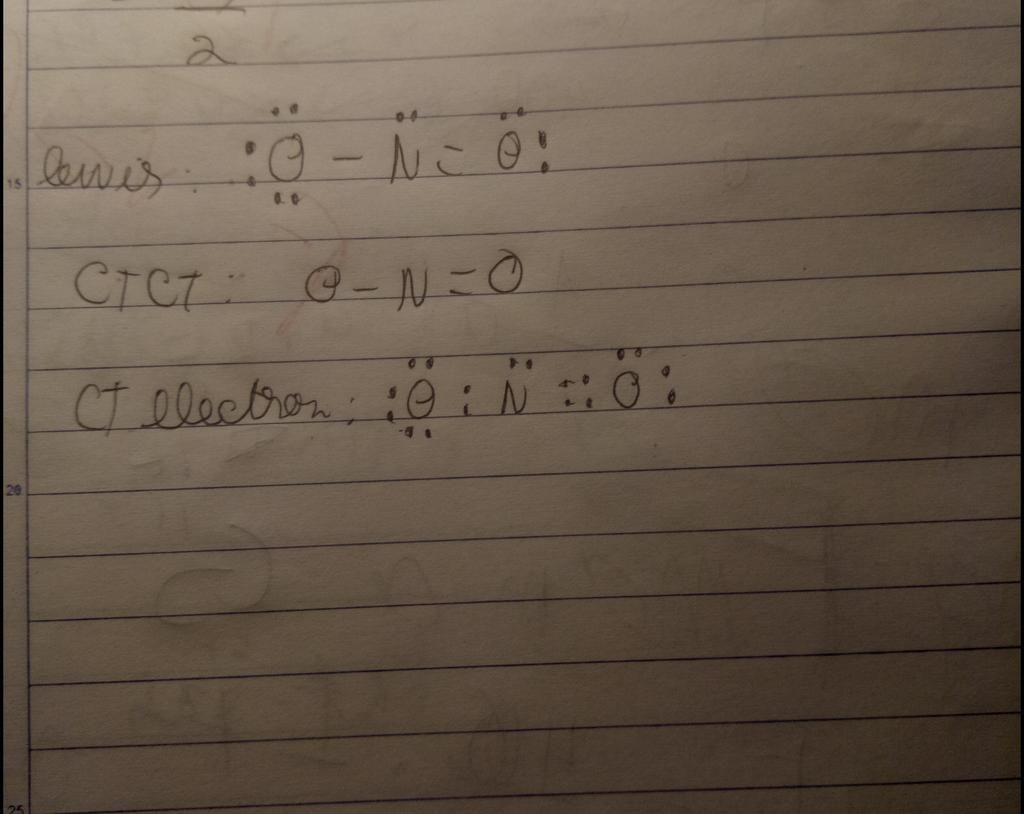 2
15 lewis: :Ö̤ - N̈ = Ö:
CTCT: O - N = O
CT electron: :Ö̤ : N̈ :: Ö:
20
25